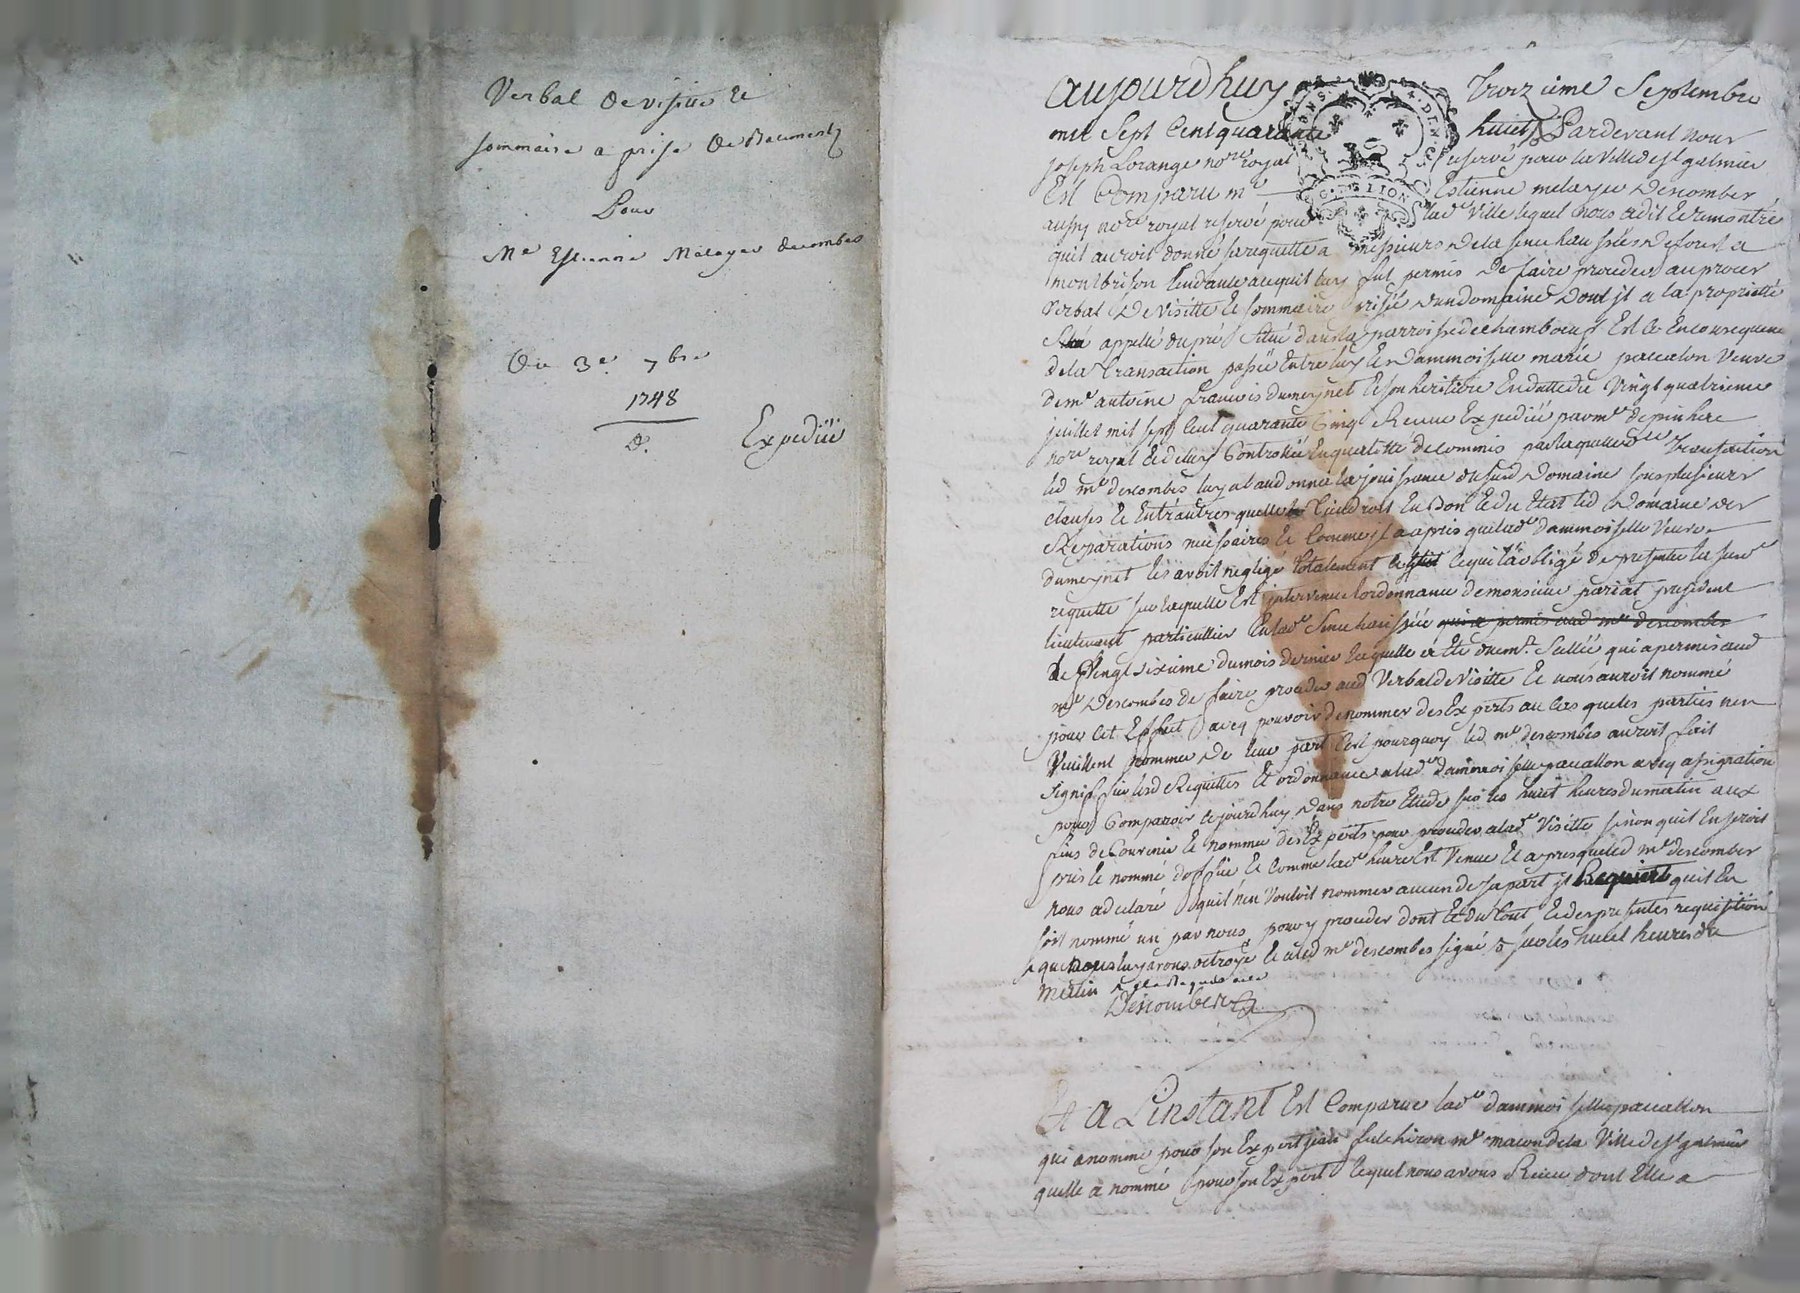 Verbal de visitte et
sommaire a prise de Batiments
Pour
Me Estienne Melayer decombes
Du 3e 7bre
1748
Expediée
aujourdhuy troizième Septembre
mil Sept Cent quarante huict Pardevant nous
Joseph Lorange nore royal reservé pour la Ville de st galmier
Est Comparu me Estienne melayer Descombes
aussy nore royal reservé pour lade Ville lequel nous a dit et remontré
quil auroit donné sa requette a messieurs de la senechaussée de forest a
montbrison tendante acequil luy fut permis de faire proceder au procer
Verbal de Visitte et sommaire prisée dun domaine dont jl a la proprietté
appellé du pré Situé dans la parroisse de chambœuf Est ce En consequence
de la transaction passée Entre luy et dammoiselle marie pacallon Veuve
de me antoine francois dumeynet et son heritiere En datte du Vingt quatrieme
juillet mil sept Cent quarante Cinq Receue Expediée par me depinhac
nore royal et deluy Controllée En qualitté de commis par laquelle de transaction
led me descombes luy a abandonné la jouissance dususd Domaine sous plusieurs
clauses et Entrautres quelle tiendroit En Bon et du Etat led Domaine des
Reparations nécessaires et Comme jl a apris que lade dammoiselle Veuve
dumeynet les avoit negligé totalement cequi la obligé de presenter la susde
requette sur laquelle Est jntervenue lordonnance de monsieur pariat president
lieutenant particullier En lade Senechaussée qui a permis aud me descombes
le Vingt sixieme du mois dernier laquelle a été duemt Scellée qui a permis aud
me Descombes de faire proceder aud Verbal de Visitte et nous auroit nommé
pour cet Effect avec pouvoir de nommer des Experts au Cas que les parties nen
Veuillent nommer de leur part Cest pourquoy led me descombes auroit fait
signiffier lesd Requettes et ordonnance a lade dammoiselle pacallon avec assignation
pour Comparoir cejourdhuy dans notre Etude sur les huict heures du matin aux
fins de Convenir et nommer des Experts pour proceder a lade Visitte sinon quil En seroit
pris et nommé doffice et Comme lade heure Est Venue et apres que led me descombes
nous a declaré quil nen Vouloit nommer aucun de sa part jl Requiert quil En
soit nommé un par nous pour y proceder dont et du tout et des presentes requisition
ce que nous luy avons octroyé et a led me descombes signé sur les huict heures du
Matin
Descombes
Et a L'instant Est Comparue lade dammoiselle pacallon
qui a nommé pour son Expert jean fulchiron me macon de la Ville de st galmier
quelle a nommé pour son Expert lequel nous avons Receu dont Elle a